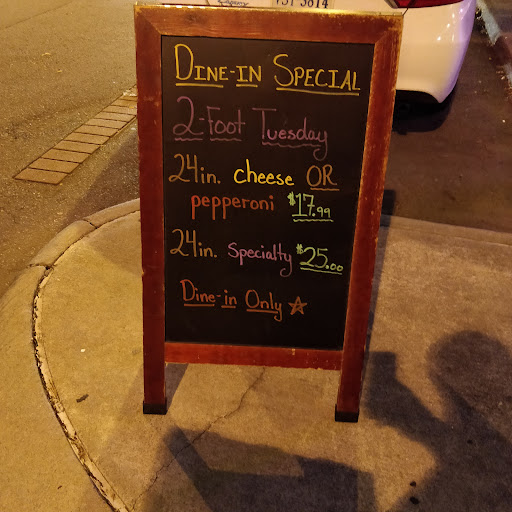 DINE-IN SPECIAL
2-Foot Tuesday
24in. cheese OR
pepperoni $17.99
24in. Specialty $25.00
Dine-in Only